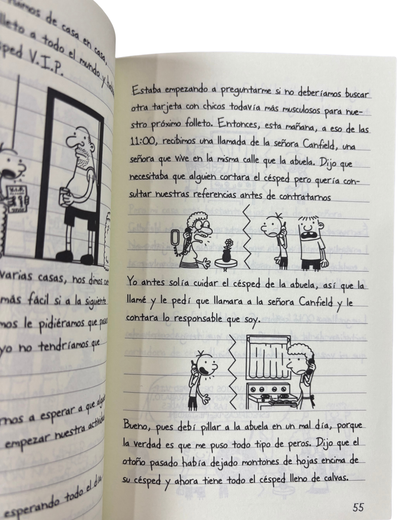 de casa en casa,
a todo el mundo y
V.I.P.
varias casas, nos dimos
más fácil si a la siguiente
le pidiéramos que
yo no tendríamos que
a esperar a que
empezar nuestra
esperando todo el día
Estaba empezando a preguntarme si no deberíamos buscar
otra tarjeta con chicos todavía más musculosos para nue-
stro próximo folleto. Entonces, esta mañana, a eso de las
11:00, recibimos una llamada de la señora Canfield, una
señora que vive en la misma calle que la abuela. Dijo que
necesitaba que alguien cortara el césped pero quería con-
sultar nuestras referencias antes de contratarnos
Yo antes solía cuidar el césped de la abuela, así que la
llamé y le pedí que llamara a la señora Canfield y le
contara lo responsable que soy.
Bueno, pues debí pillar a la abuela en un mal día, porque
la verdad es que me puso todo tipo de peros. Dijo que el
otoño pasado había dejado montones de hojas encima de
su césped y ahora tiene todo el césped lleno de calvas.
55